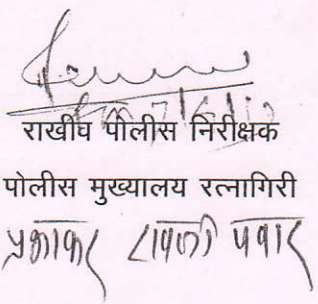 राखीव पोलीस निरीक्षक
पोलीस मुख्यालय रत्नागिरी
प्रभाकर रावजी पवार